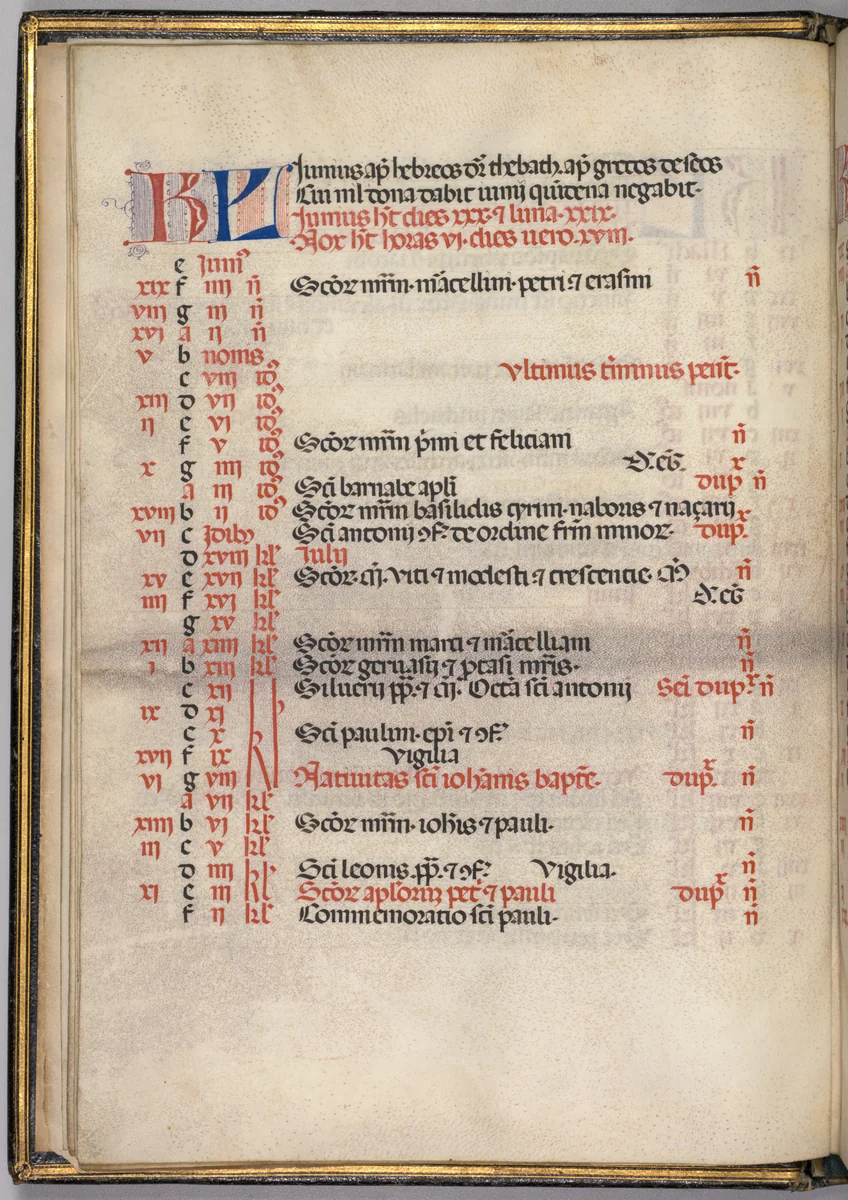 KL Junius ap̄ hebreos dr̄ thebath ap̄ grecos desçeos
Cui nil dona dabit iunii quītena negabit.
Junius hēt dies xxx. ⁊ luna. xxix.
Nox hēt horas vi. dies uero. xviii.
e Junii
xix f iiii ñ Scōꝝ mr̄m. m̄cellini. petri ⁊ erasmi ñ
viii g iii ñ
xvi a ii ñ
v b nonis
c viii id' vltimus t̄minus pent̄.
xiii d vii id'
ii e vi id'
f v id' Scōꝝ mr̄m p̄mi et feliciani ñ
x g iiii id' x
a iii id' Scī barnabe apl̄i dup̄ ñ
xviii b ii id' Scōꝝ mr̄m basilidis cyrini. naboris ⁊ naçarij x
vii c Idib; Scī antonij ꝯf. de ordine fr̄m minoꝝ. dup̄.
d xviii kl' Iulij
xv e xvii kl' Scōꝝ. m̄. viti ⁊ modesti ⁊ crescentie. ñ
iiii f xvi kl'
g xv kl'
xii a xiiii kl' Scōꝝ mr̄m marci ⁊ m̄celliani ñ
i b xiii kl' Scōꝝ geruasij ⁊ p̄tasij mr̄is. ñ
c xii Siluerij pp̄. ⁊ m̄. Octā scī antonij Sēi dup̄. ñ
ix d xi kl'
e x Scī paulini. epī ⁊ ꝯf. ñ
xvii f ix Vigilia
vi g viii Natiuitas scī ioh̄anis bapt̄e. dup̄. x ñ
a vii kl'
xiiii b vi kl' Scōꝝ mr̄m. ioh̄is ⁊ pauli. ñ
iii c v kl'
d iiii kl' Scī leonis. pp̄. ⁊ ꝯf. Vigilia. ñ
xi e iii kl' Scōꝝ apl̄oꝝ pet̄ ⁊ pauli dup̄ x ñ
f ii kl' Commemoratio scī pauli. ñ